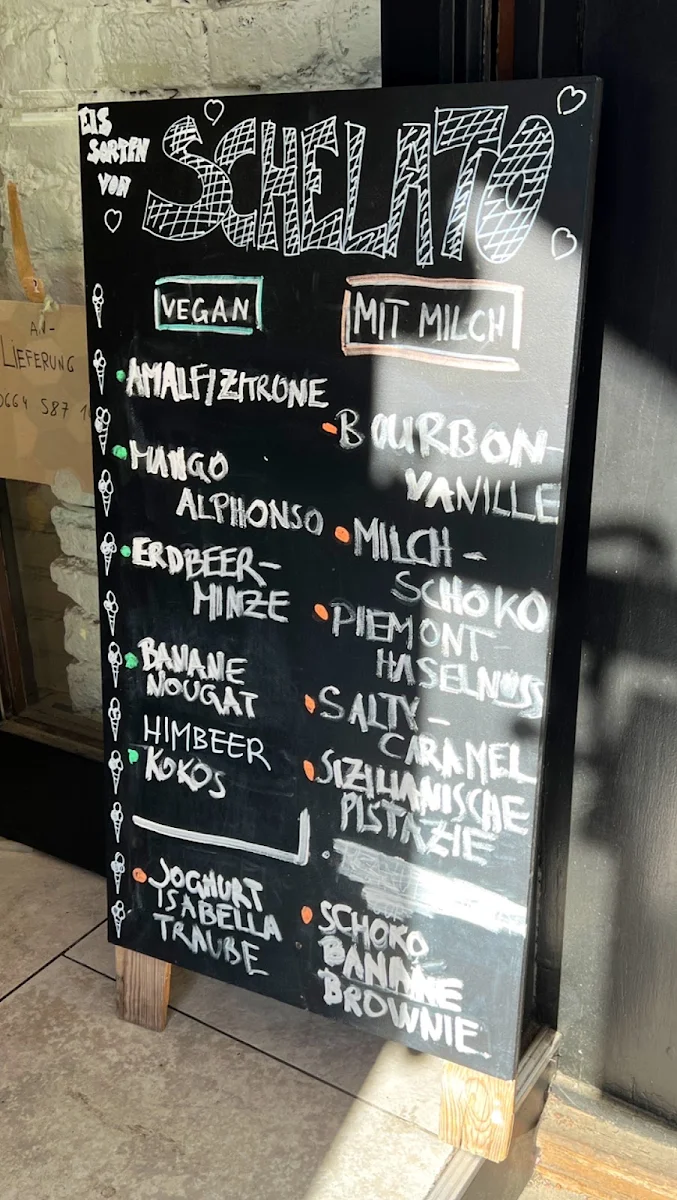 EIS
SORTEN
VON
SCHELATO
VEGAN
AMALFIZITRONE
MANGO
ALPHONSO
ERDBEER-
MINZE
BANANE
NOUGAT
HIMBEER
KOKOS
JOGHURT
ISABELLA
TRAUBE
MIT MILCH
BOURBON
VANILLE
MILCH-
SCHOKO
PIEMONT
HASELNUSS
SALTY-
CARAMEL
SIZILIANISCHE
PISTAZIE
SCHOKO
BANANE
BROWNIE
AN-
LIEFERUNG
0664 587